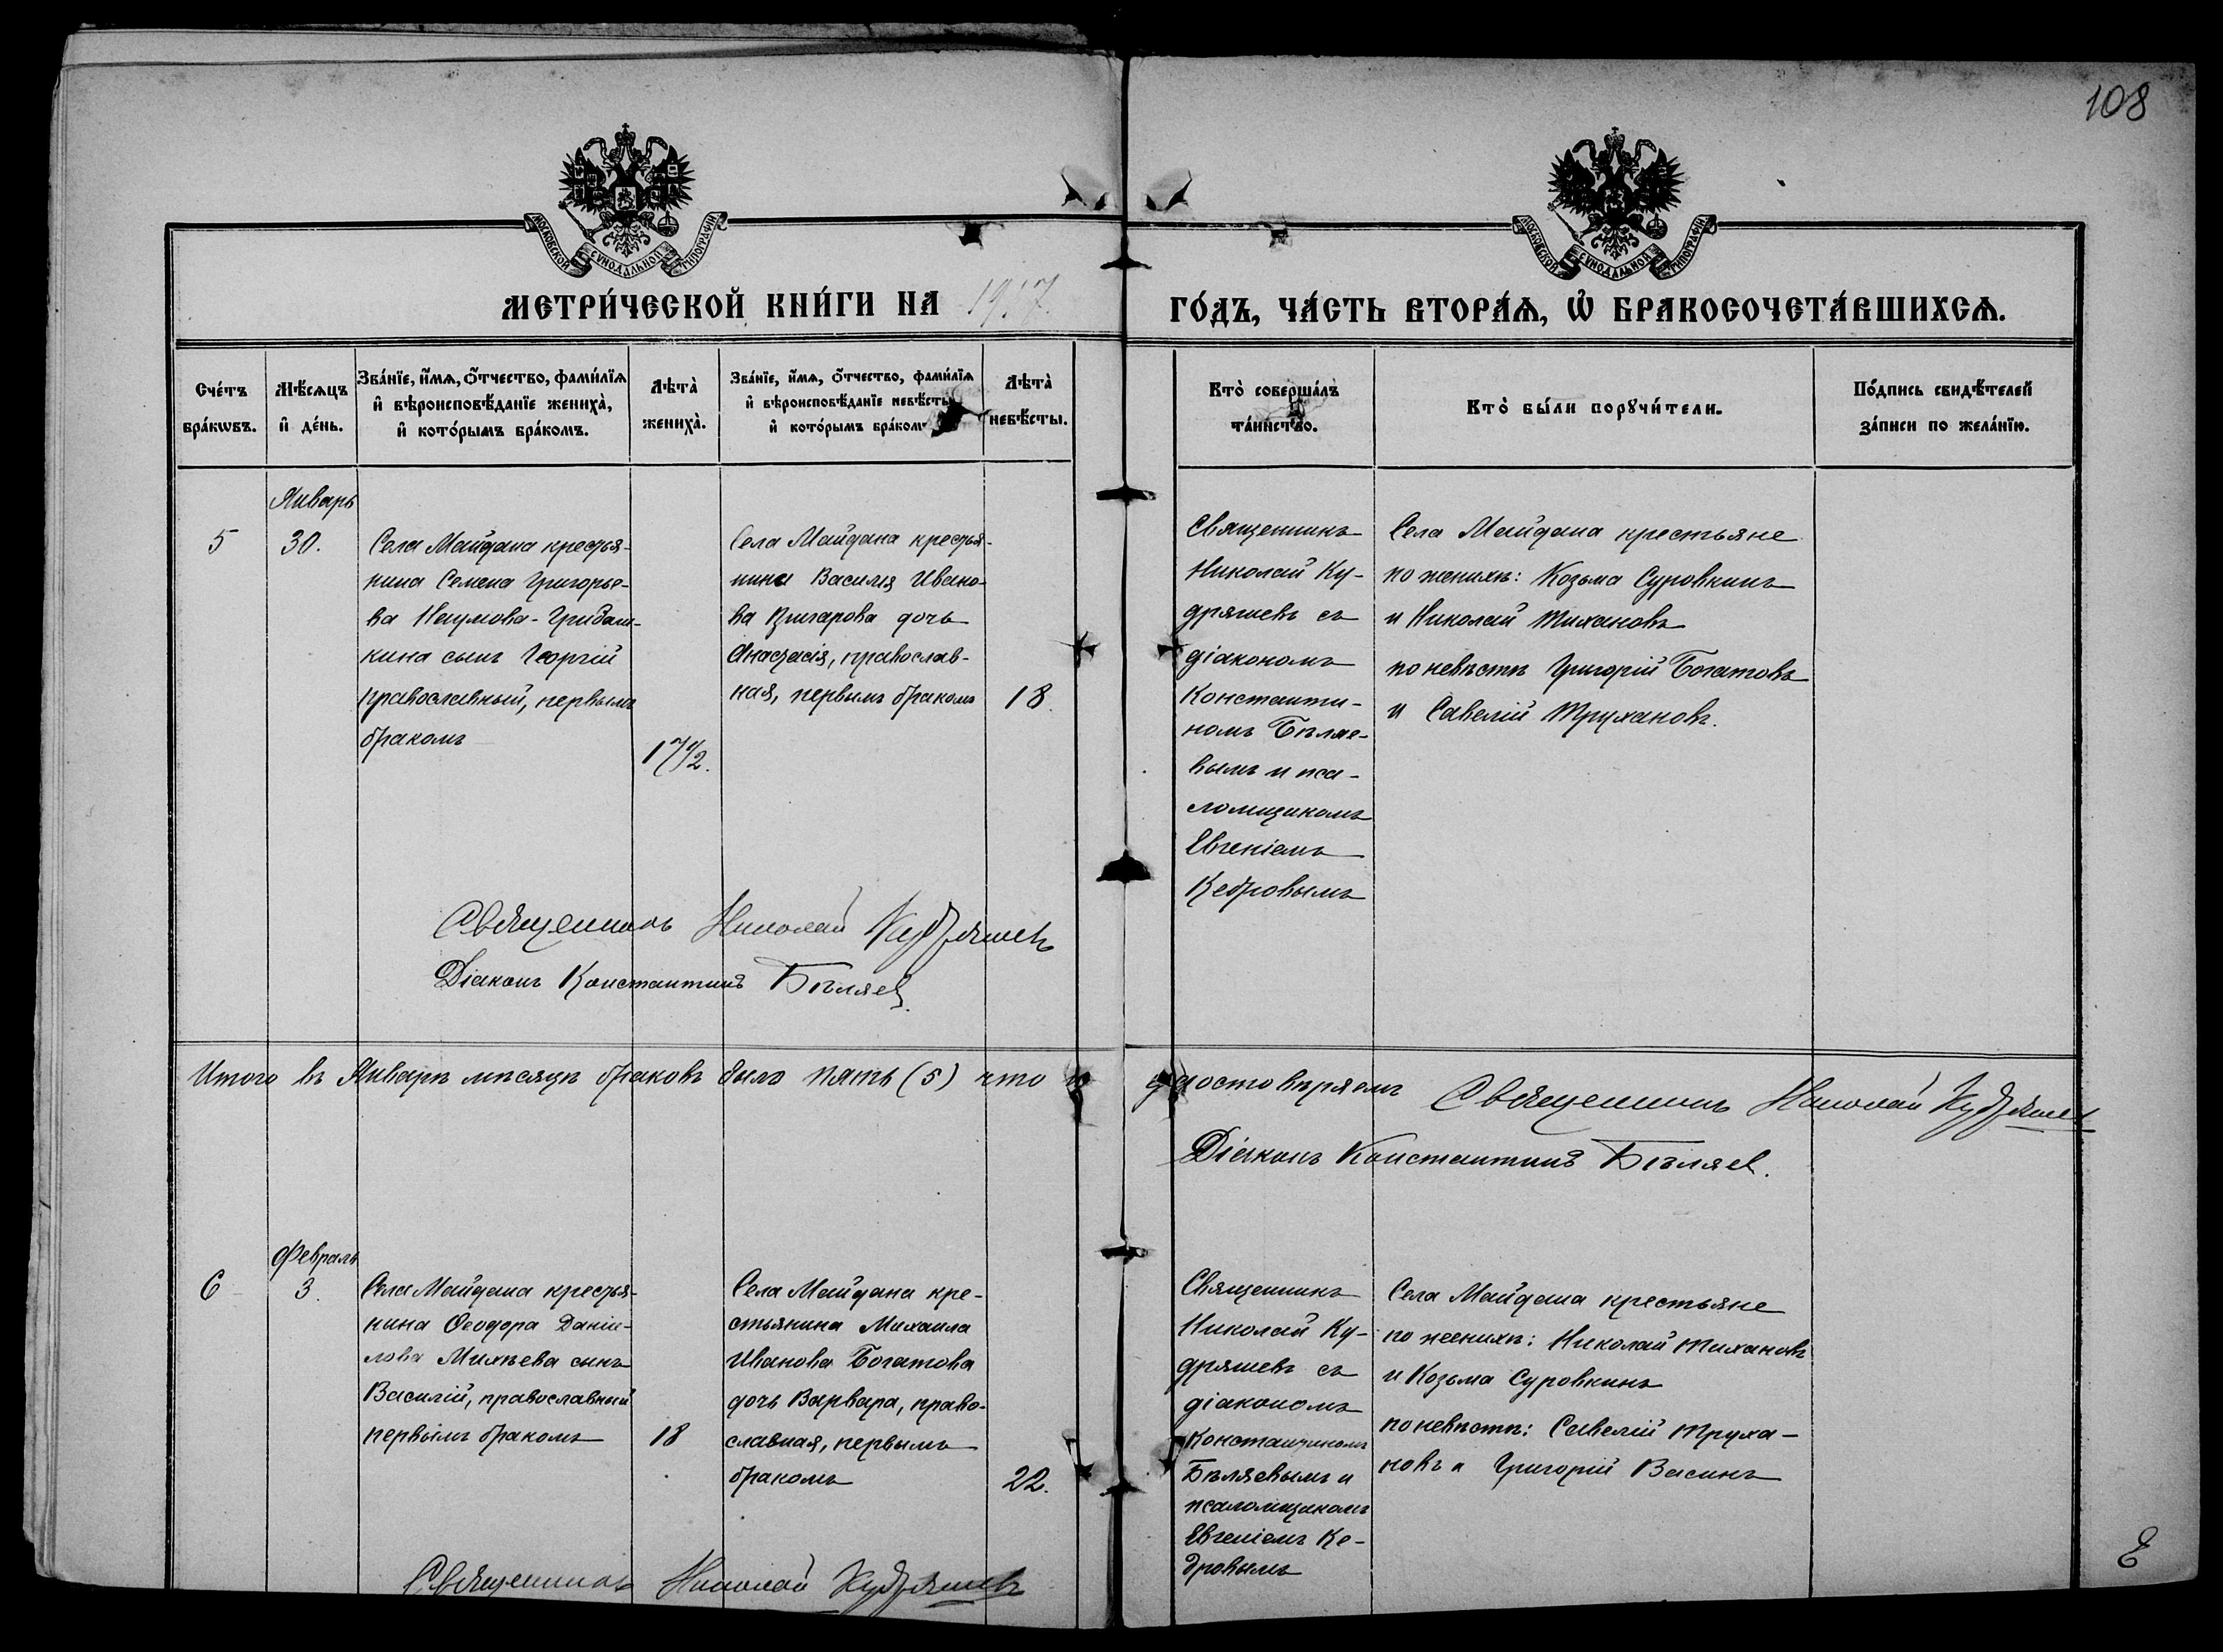 108
МОСКОВСКОЙ СУНОДАЛЬНОЙ ТИПОГРАФІИ
МОСКОВСКОЙ СУНОДАЛЬНОЙ ТИПОГРАФІИ
МЕТРИ́ЧЕСКОЙ КНИ́ГИ НА 1917 ГО́ДЪ, ЧА́СТЬ ВТОРА́Ѧ, Ѡ҆ БРАКОСОЧЕТА́ВШИХСѦ.
Сче́тъ
бра́кѡвъ.
Мѣ́сѧцъ
и҆ де́нь.
Зва́нїе, и҆́мѧ, ѻ҆́тчество, фами́лїѧ
и҆ вѣроисповѣ́данїе жениха̀,
и҆ кото́рымъ бра́комъ.
Лѣта̀
жениха̀.
Зва́нїе, и҆́мѧ, ѻ҆́тчество, фами́лїѧ
и҆ вѣроисповѣ́данїе невѣ́сты,
и҆ кото́рымъ бра́комъ
Лѣта̀
невѣ́сты.
Кто̀ соверша́лъ
та́инство.
Кто̀ бы́ли порꙋчи́тели.
По́дпись свидѣ́телей
за́писи по жела́нїю.
Январь
5
30.
Села Майдана крестья-
нина Семена Григорье-
ва Наумова-Гридаш-
кина сынъ Георгій
православный, первымъ
бракомъ
17 1/2.
Села Майдана крестья-
нина Василія Ивано-
ва дочь
Анастасія, православ-
ная, первымъ бракомъ
18.
Священникъ
Николай Ку-
дряшевъ съ
діакономъ
Константи-
номъ Бѣляе-
вымъ и пса-
ломщикомъ
Евгеніемъ
Кедровымъ
Села Майдана крестьяне
по женихѣ: Козьма Суровкинъ
и Николай Тихановъ
по невѣстѣ Григорій Богатовъ
и Савелій Трухановъ.
Священникъ Николай Кудряшевъ
Діаконъ Константинъ Бѣляев.
Итого въ Январѣ мѣсяцѣ браковъ было пять (5) что и удостовѣряемъ Священникъ Николай Кудряшев
Діаконъ Константинъ Бѣляев.
Февраль
6
3.
Села Майдана крестья-
нина Ѳеодора Даніи-
лова Михѣева сынъ
Василій, православный
первымъ бракомъ
18
Села Майдана кре-
стьянина Михаила
Иванова Богатова
дочь Варвара, право-
славная, первымъ
бракомъ
22.
Священникъ
Николай Ку-
дряшевъ съ
діакономъ
Константиномъ
Бѣляевымъ и
псаломщикомъ
Евгеніемъ Ке-
дровымъ
Села Майдана крестьяне
по женихѣ: Николай Тихановъ
и Козьма Суровкинъ
по невѣстѣ: Савелій Труха-
новъ и Григорій Васинъ
Священникъ Николай Кудряшевъ